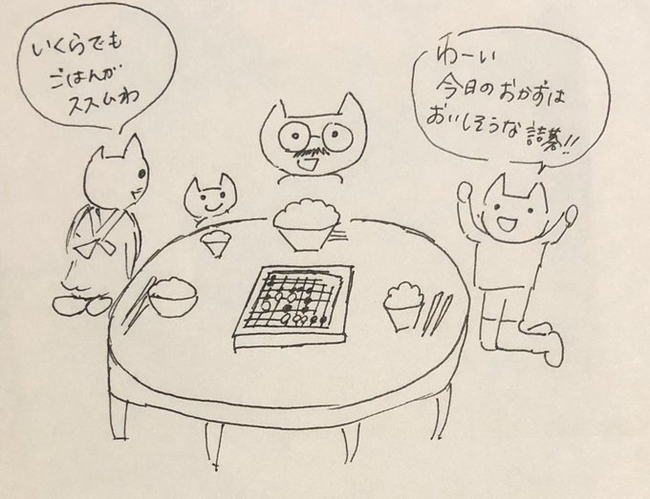 いくらでも
ごはんが
ススムわ
わーい
今日のおかずは
おいしそうな詰碁!!